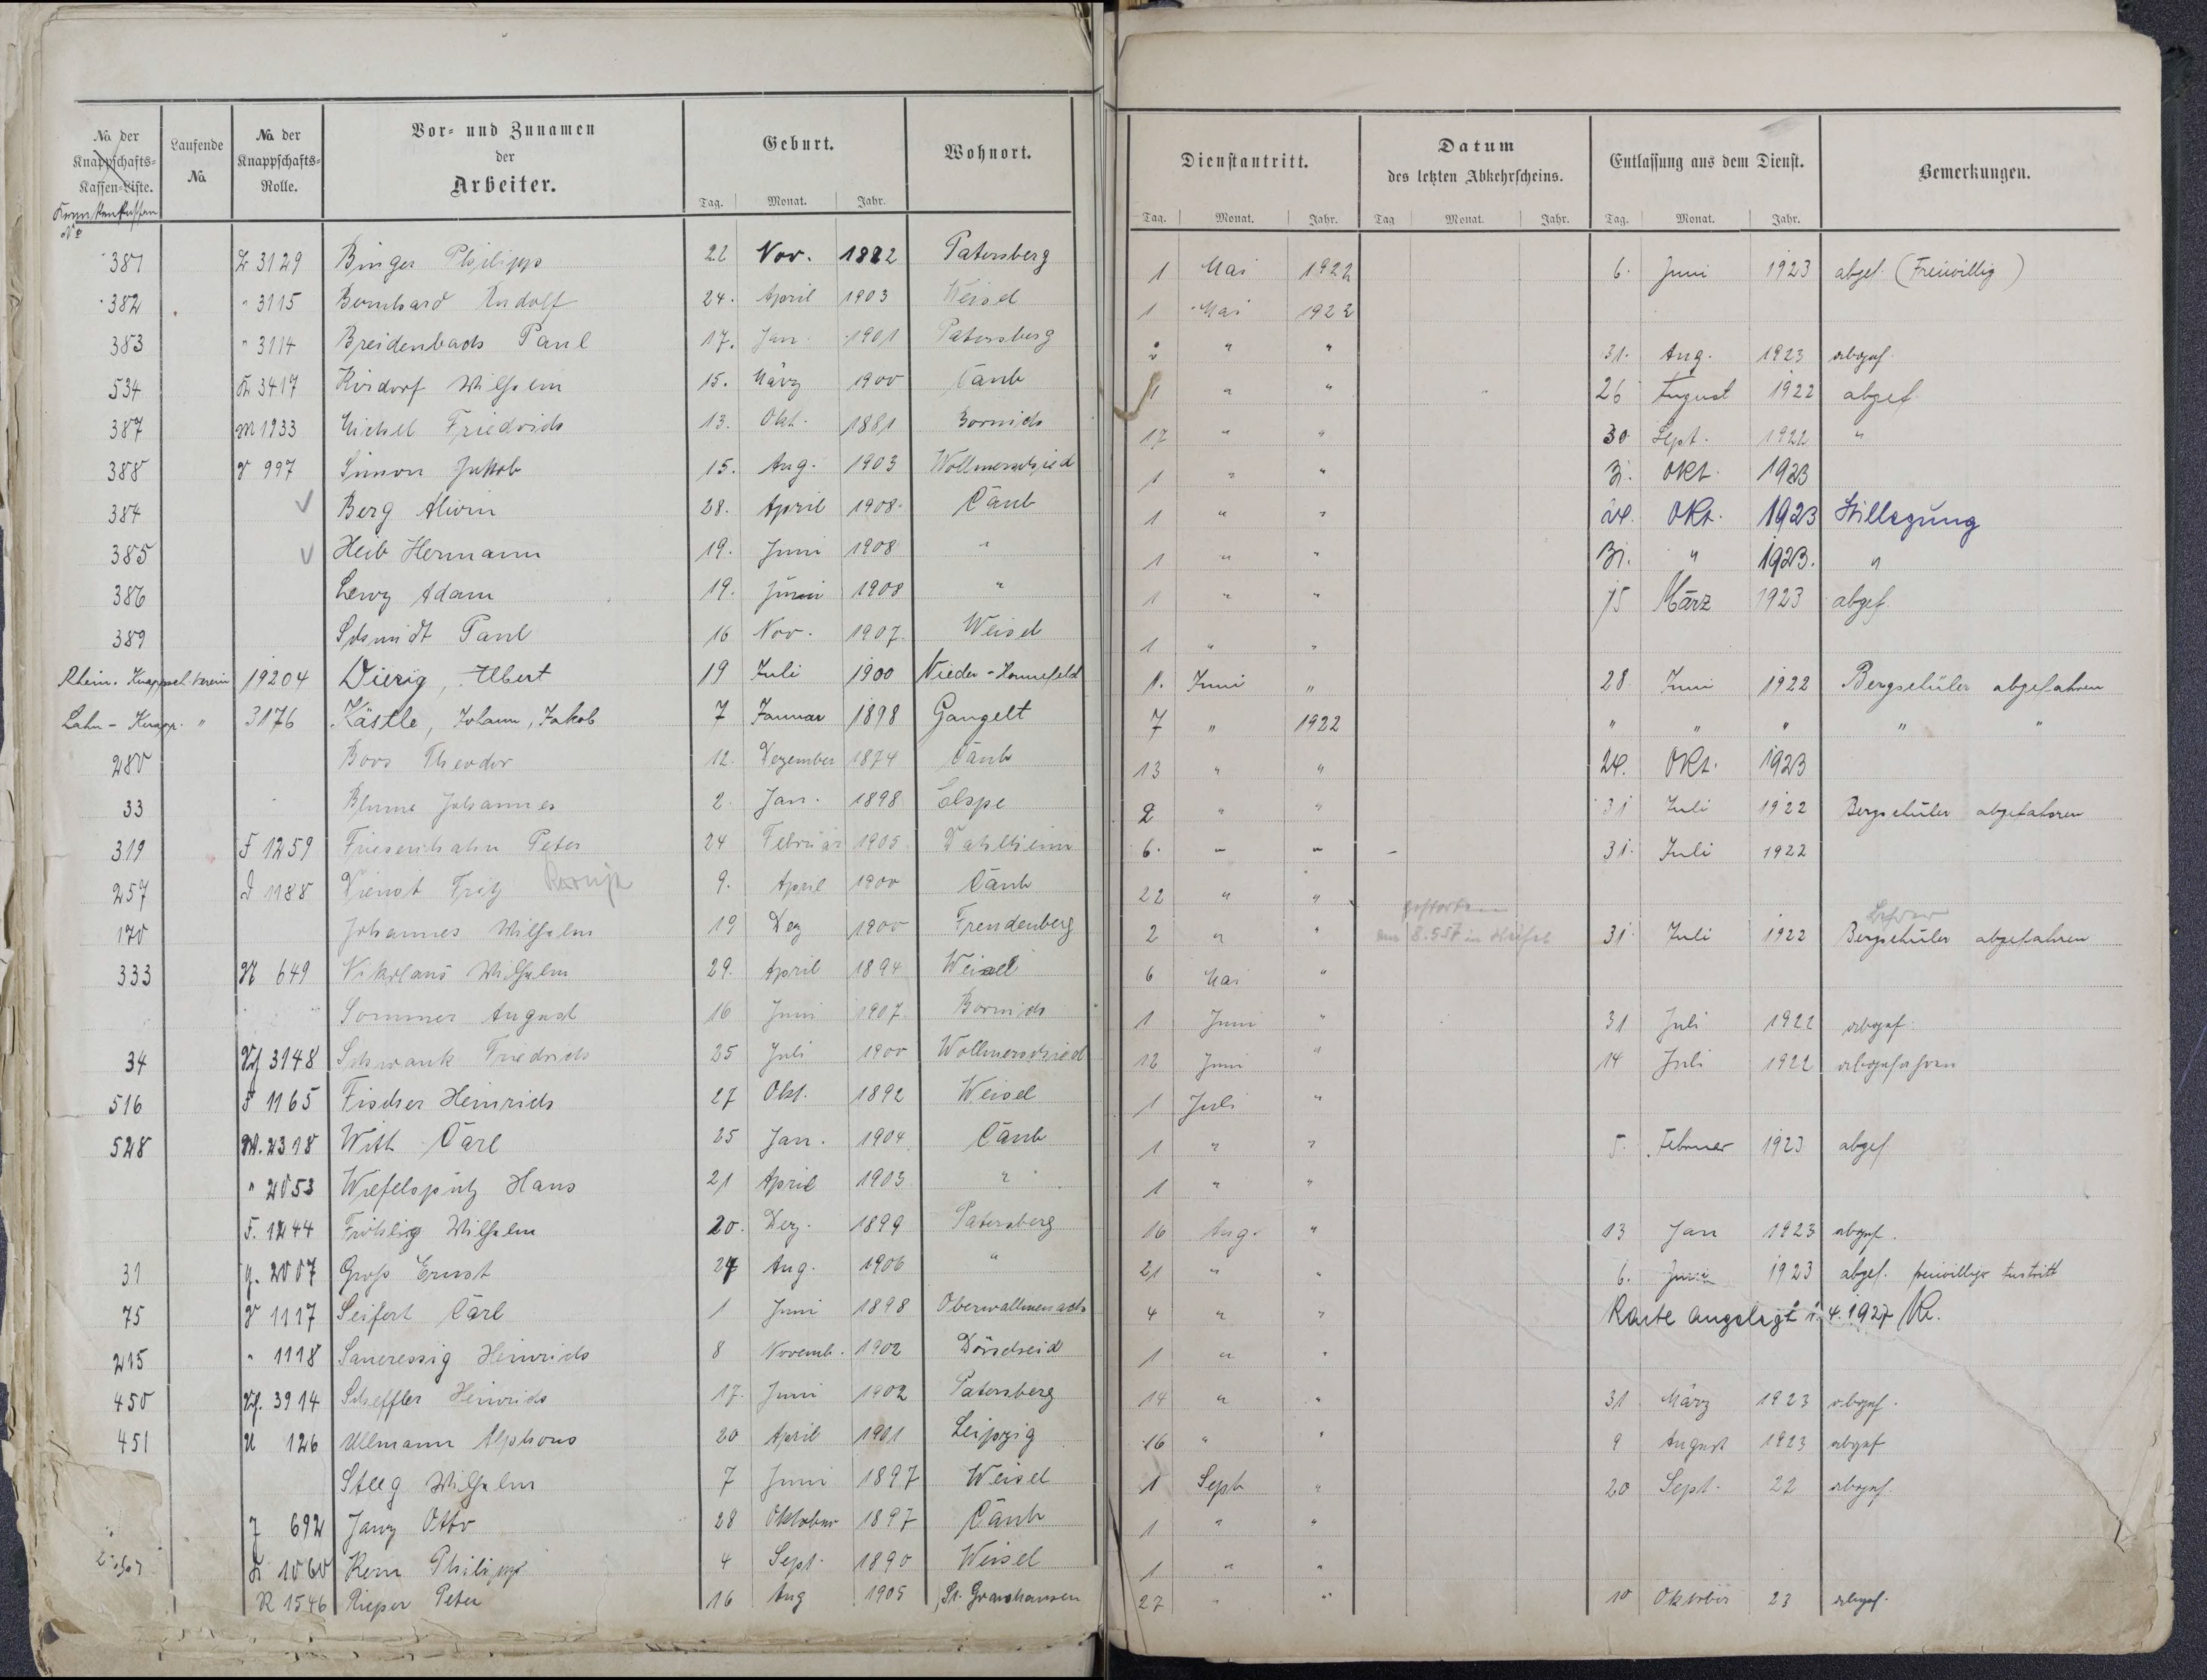 No. der Knappschafts-Kassen-Liste. Laufende No. No. der Knappschafts-Rolle. Vor- und Zunamen der Arbeiter. Geburt. Wohnort. Dienstantritt. Datum des letzten Abkehrscheins. Entlassung aus dem Dienst. Bemerkungen.
Tag. Monat. Jahr. Tag. Monat. Jahr. Tag Monat. Jahr. Tag. Monat. Jahr.
Krankenkassen No
381 3129 Binger Philipp 22 Nov. 1882 Patersberg 1 Mai 1922 6. Juni 1923 abgef. (Freiwillig)
382 " 3115 Bernhard Rudolf 24. April 1903 Weisel 1 Mai 1922
383 " 3114 Breidenbach Paul 17. Jan. 1901 Patersberg " " 31. Aug. 1923 abgef.
534 K 3417 Kirdorf Wilhelm 15. März 1900 Caub 1 " " 26 August 1922 abgef.
387 M 1933 Michel Friedrich 13. Okt. 1881 Bornich 17 " " 30. Sept. 1922 "
388 997 Simon Jakob 15. Aug. 1903 Wollmerschied 1 " " 31. Okt. 1923
384 Berg Alwin 28. April 1908. Caub 1 " " 24. Okt. 1923 Stillegung
385 Heib Hermann 19. Juni 1908 " 1 " " 31. " 1923. "
386 Levy Adam 19. Juni 1908 " 1 " " 15 März 1923 abgef
389 Schmidt Paul 16 Nov. 1907. Weisel 1 " "
Rhein. Knappsch. Verein 19204 Dierig, Albert 19 Juli 1900 Nieder-Honnefeld 1. Juni " 28 Juni 1922 Bergschüler abgefahren
Lahn-Knapp. " 3176 Kästle, Johann, Jakob 7 Januar 1898 Gangelt 7 " 1922 " " " " "
280 Boos Theodor 12. Dezember 1874 Caub 13 " " 24. Okt. 1923
33 Blume Johannes 2. Jan. 1898 Elspe 2 " " 31 Juli 1922 Bergschüler abgefahren
319 F 1259 Friesenhahn Peter 24 Februar 1905 Dahlheim 6. " " 31. Juli 1922
257 D 1188 Dienst Fritz 9. April 1900 Caub 22 " "
170 Johannes Wilhelm 19 Dez 1900 Freudenberg 2 " " gestorben 31. Juli 1922 Bergschüler abgefahren
333 N 649 Nikolaus Wilhelm 29. April 1894 Weisel 6 Mai "
Sommer August 16 Juni 1907. Bornich 1 Juni " 31 Juli 1922 abgef.
34 3148 Schwank Friedrich 25 Juli 1900 Wollmerschied 12 Juni " 14 Juli 1922 abgefahren
516 F 1165 Fischer Heinrich 27 Okt. 1892 Weisel 1 Juli "
528 W. 2318 With Carl 25 Jan. 1904 Caub 1 " " 5. Februar 1923 abgef
" 2053 Wiefelspütz Hans 21 April 1903 " 1 " "
F. 1244 Fröhlig Wilhelm 20. Dez. 1899 Patersberg 16 Aug. " 13 Jan 1923 abgef.
31 G. 2007 Groß Ernst 27 Aug. 1906 " 21 " " 6. Juni 1923 abgef. freiwilliger Austritt
75 1117 Seifert Carl 1 Juni 1898 Oberwallmenach 4 " " Karte angelegt 1. 4. 1927
215 " 1118 Saueressig Heinrich 8 Novemb. 1902 Dörscheid 1 " "
450 3914 Scheffler Heinrich 17. Juni 1902 Patersberg 14 " " 31 März 1923 abgef.
451 U 126 Ullmann Alphons 20 April 1901 Leipzig 16 " " 9 August 1923 abgef
Steeg Wilhelm 7 Juni 1897 Weisel 1 Sept " 20 Sept. 22 abgef.
J 692 Jany Otto 28 Oktober 1897 Caub 1 " "
K 1060 Kern Philipp 4 Sept. 1890 Weisel 1 " "
R 1546 Rieper Peter 16 Aug 1905 St. Goarshausen 27 " " 10 Oktober 23 abgef.